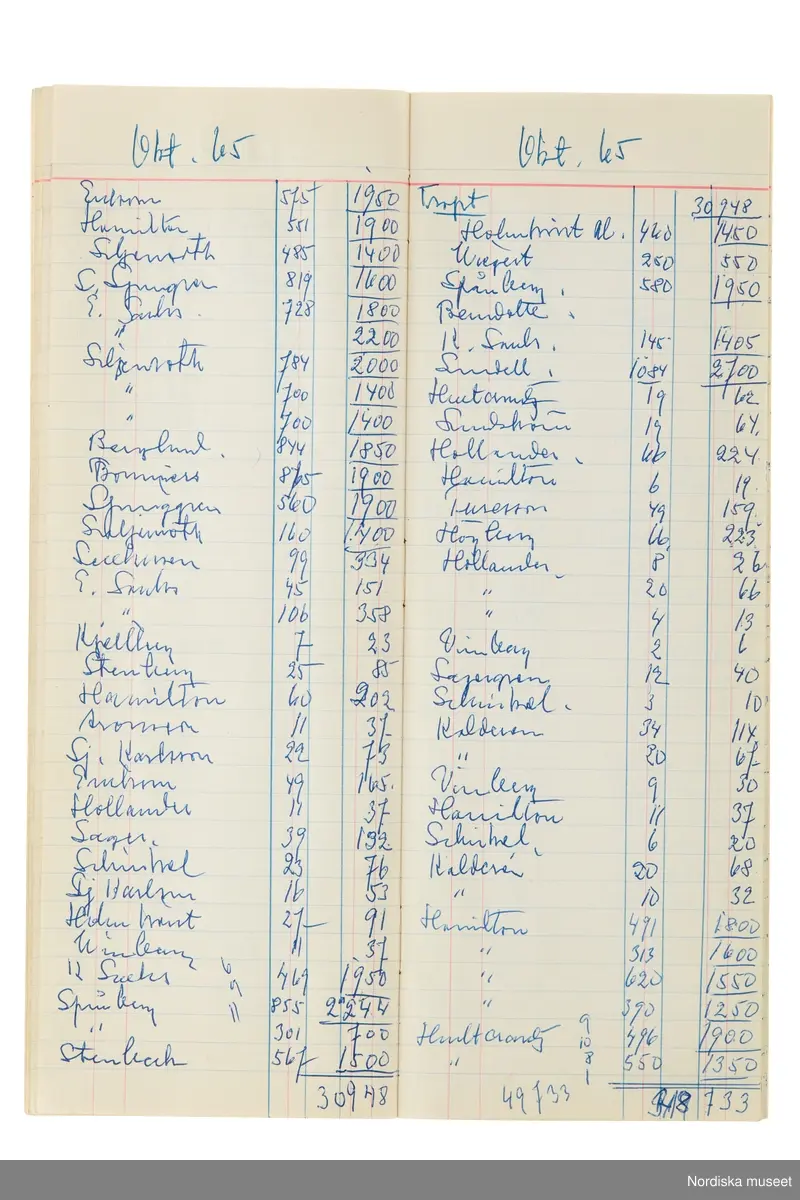 Okt. 65
Erikson 575 1950
Hamilton 551 1900
Siljenroth 485 1400
S. Ljunggren 819 1600
E. Sachs. 728 1800
" 2200
Siljenroth 784 2000
" 700 1400
" 700 1400
Berglund. 844 1850
Bonniers 865 1900
Ljunggren 560 1900
Siljenroth 160 1400
99 334
E. Sachs 45 151
" 106 358
Kjellberg 7 23
Stenberg 25 85
Hamilton 60 202
Aronsson 11 37
Sj. Karlsson 22 73
Erikson 49 165.
Hollander 11 37
Sager. 39 132
Schinkel 23 76
Sj Karlson 16 53
Holmkvist 27 91
Vinberg 11 37
K Sachs 469 1950
Spånberg 855 2244
" 301 700
Stenbeck 567 1500
30948
Okt. 65
Tropt 30948.
Holmkvist Al. 460 1450
Wigert 250 550
Spånberg. 580 1950
Bernadotte.
K. Sachs. 145 1405
Sundell. 1084 2700
Hultcrantz 19 62
Lundholm 19 64.
Hollander. 66 224
Hamilton 6 19.
Turesson 49 159.
Högberg 66 223
Hollander. 8 26
" 20 66
" 4 13
Vinberg 2 6
Sagergren 12 40
Schinkel. 3 10
Kalderen 34 114
" 20 67
Vinberg 9 30
Hamilton 11 37
Schinkel. 6 20
Kalderén 20 68
" 10 32
Hamilton 491 1800
" 313 1600
" 620 1550
" 390 1250
Hultcrantz 496 1900
" 550 1350
49733 733
Nordiska museet